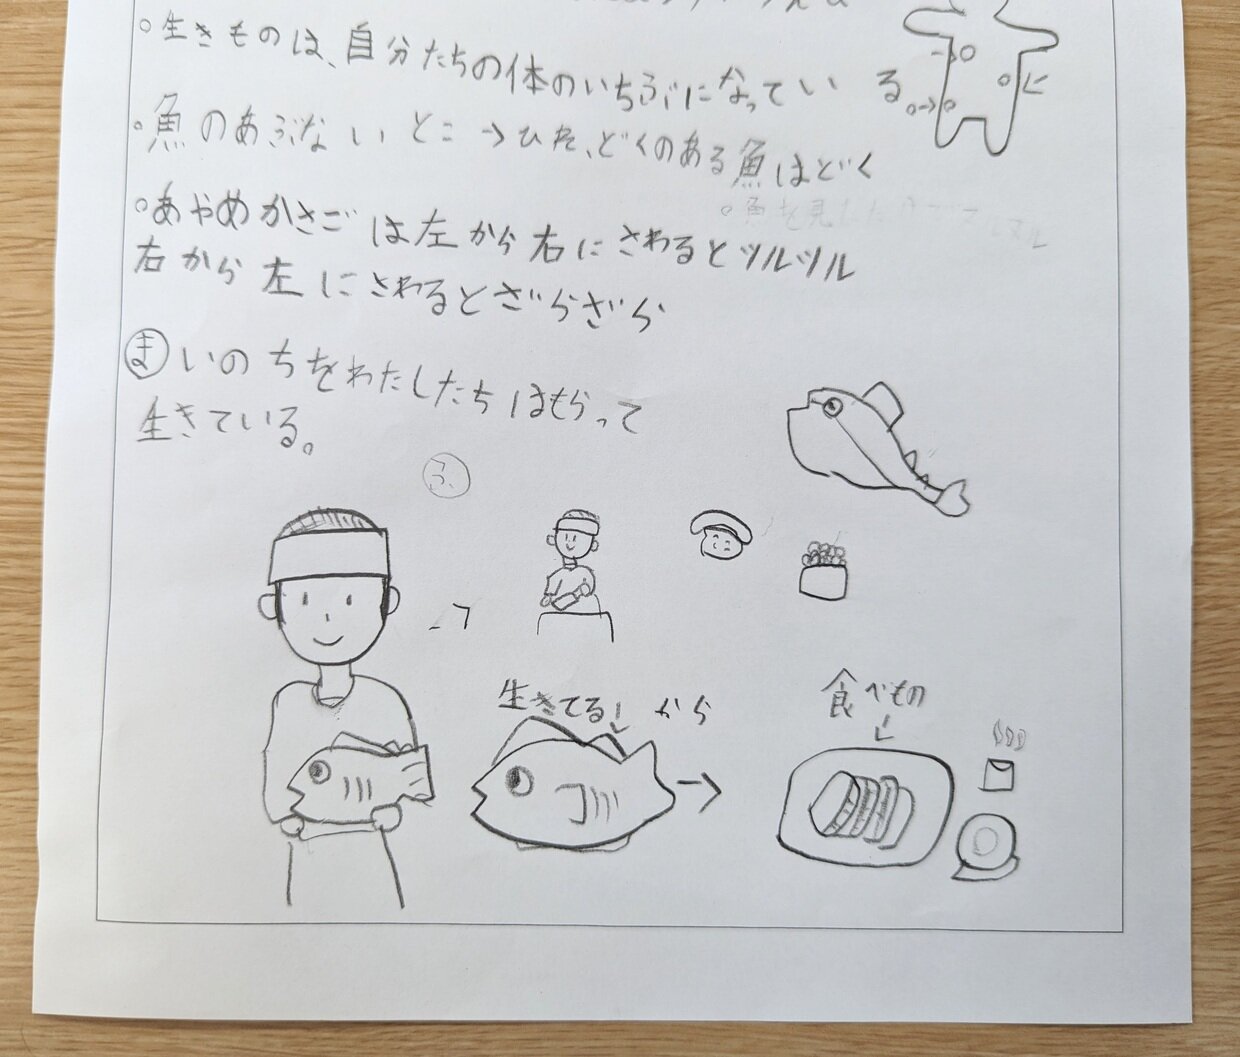 ○生きものは、自分たちの体のいちぶになっている。
○魚のあぶないとこ→ひれ、どくのある魚はどく
○魚を見た
○あやめかさごは左から右にさわるとツルツル
右から左にさわるとざらざら
ま いのちをわたしたちはもらって
生きている。
ふ
生きてる から
食べもの